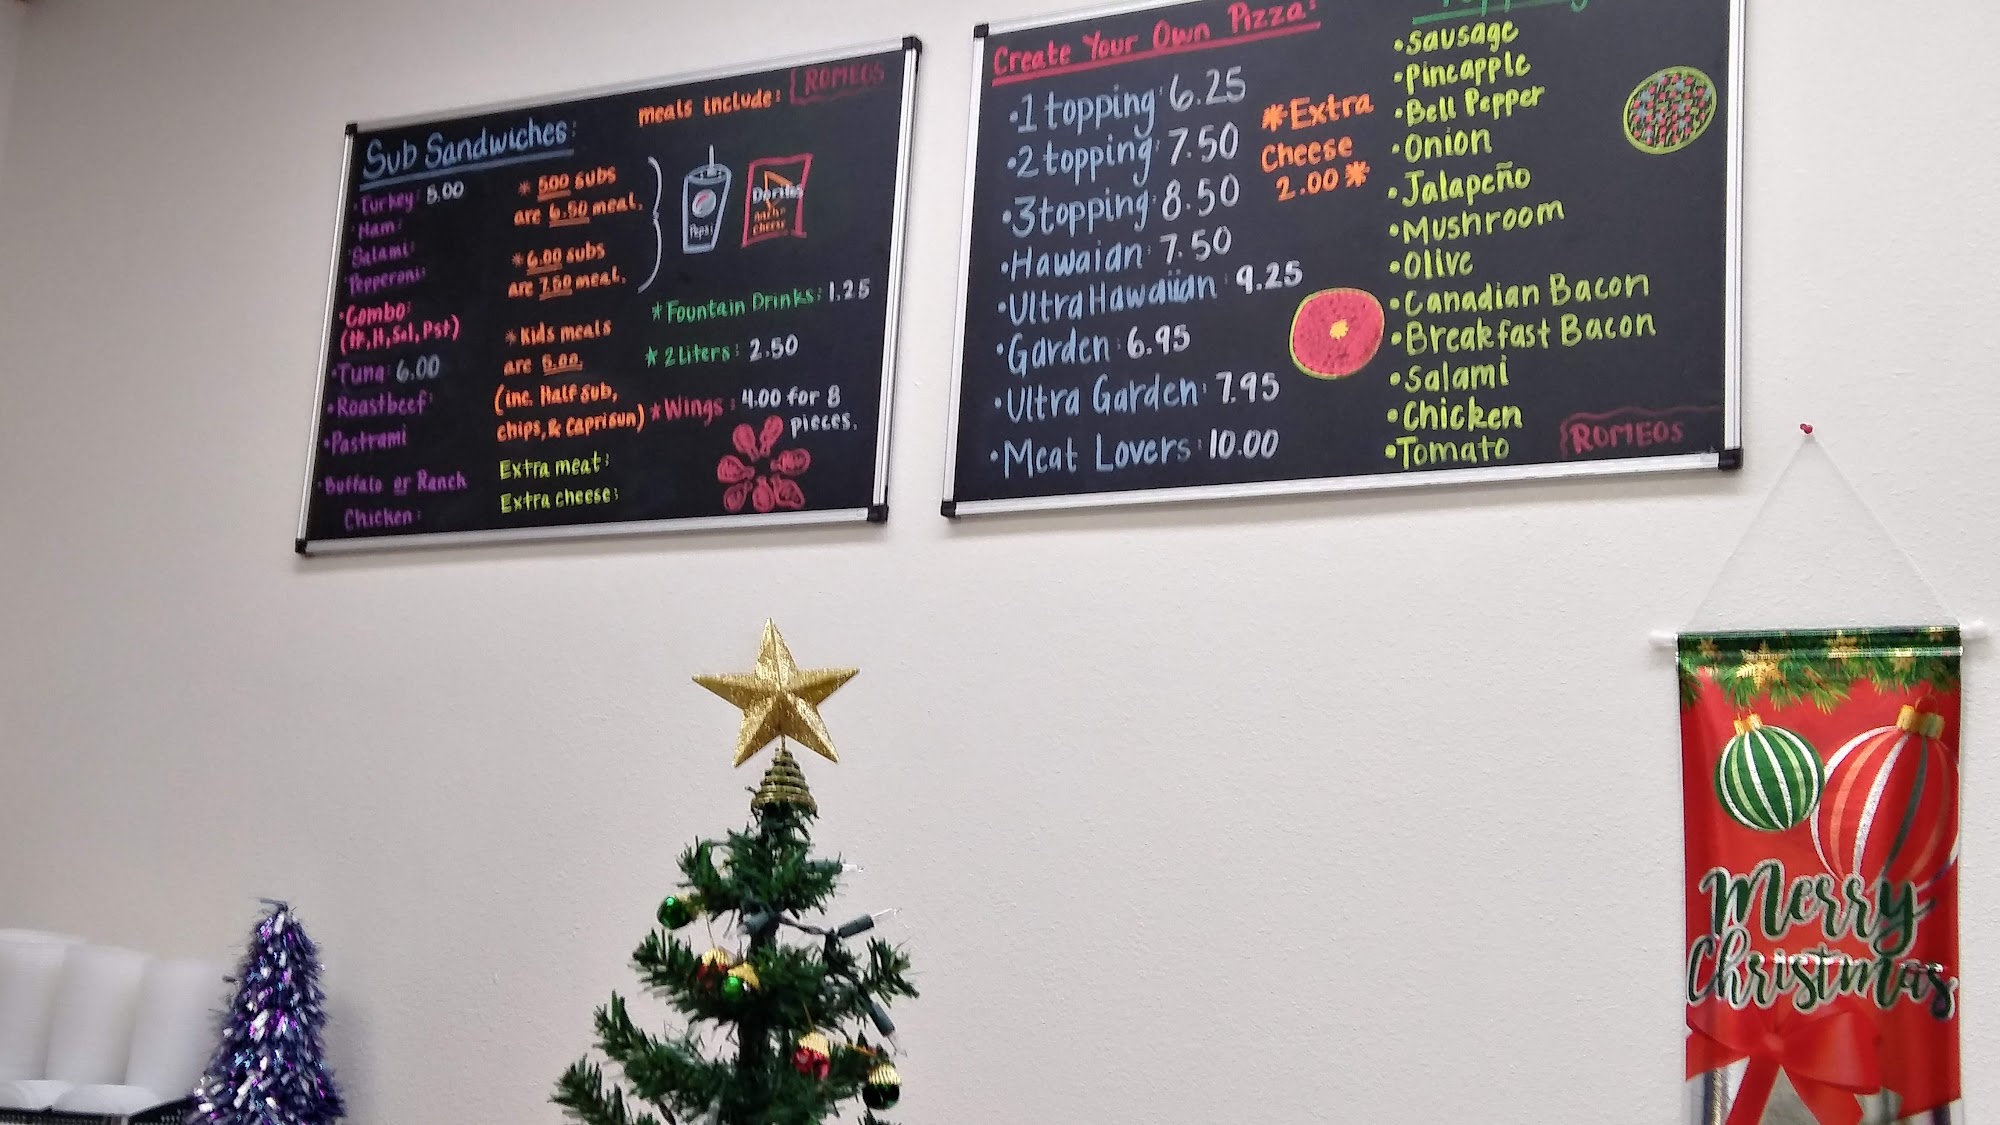 Sub Sandwiches:
• Turkey: 5.00
• Ham:
• Salami:
• Pepperoni:
• Combo:
• Tuna: 6.00
• Roastbeef:
• Pastrami
• Buffalo or Ranch
Chicken:
* 500 subs
are 6.50 meal.
* 6.00 subs
are 7.50 meal.
* Kids meals
are 5.00.
(inc. Half sub,
chips, & Caprisun)
Extra meat:
Extra cheese:
meals include:
ROMEOS
Pepsi
Doritos
nacho
cheese
* Fountain Drinks: 1.25
* 2 Liters: 2.50
* Wings: 4.00 for 8
pieces.
Create Your Own Pizza:
• 1 topping: 6.25
• 2 topping: 7.50
• 3 topping: 8.50
• Hawaian: 7.50
• Ultra Hawaiian: 9.25
• Garden: 6.95
• Ultra Garden: 7.95
• Meat Lovers: 10.00
* Extra
Cheese
2.00 *
• Sausage
• Pineapple
• Bell Pepper
• Onion
• Jalapeño
• Mushroom
• Olive
• Canadian Bacon
• Breakfast Bacon
• Salami
• Chicken
• Tomato
ROMEOS
Merry
Christmas